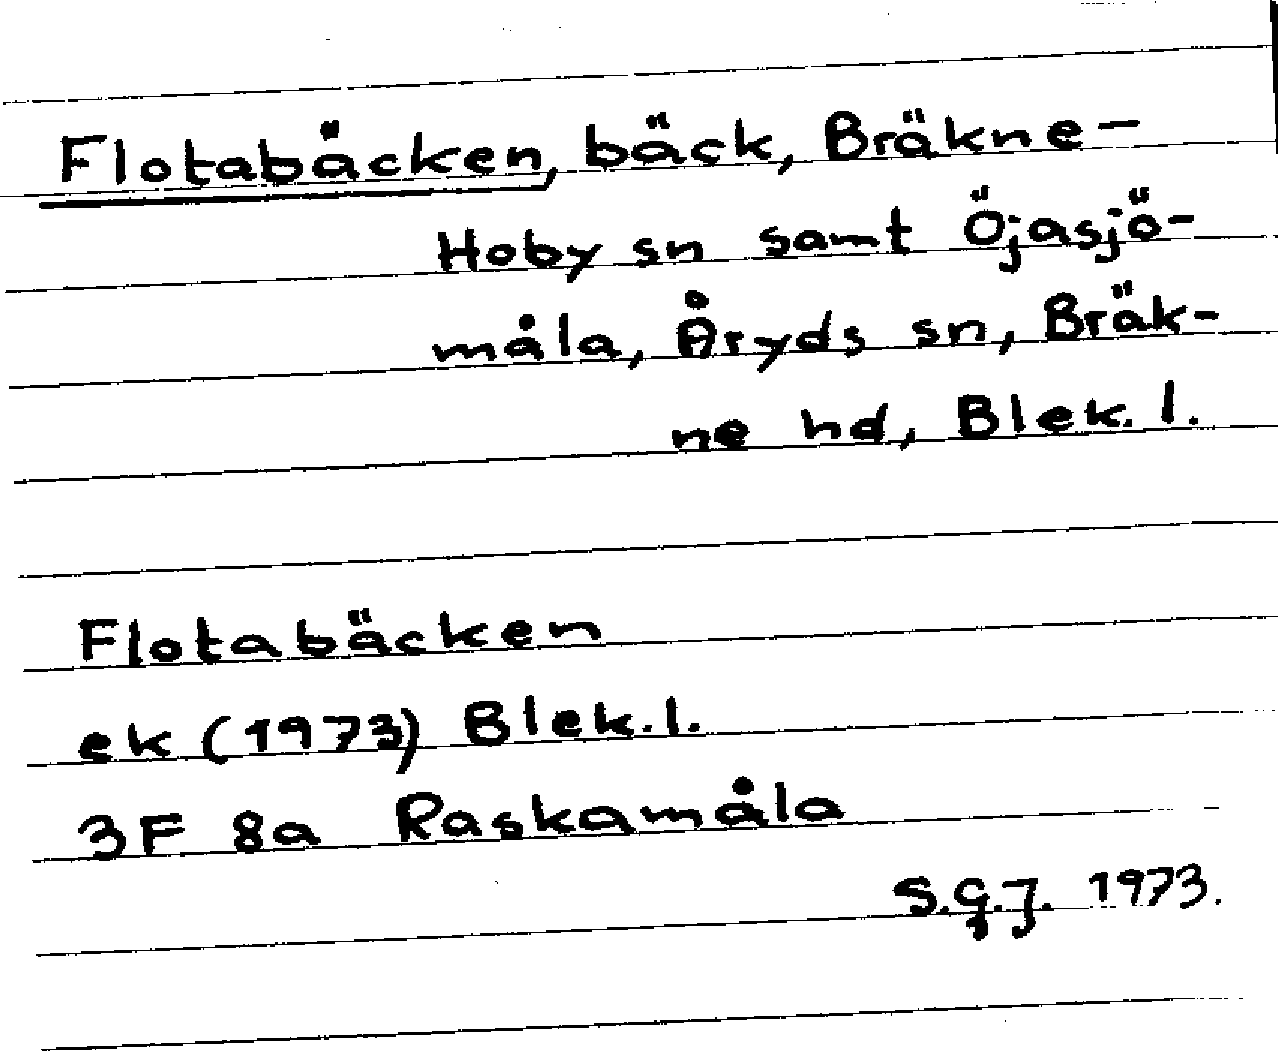 Flotabäcken, bäck, Bräkne-
Hoby sn samt Öjasjö-
måla, Åryds sn, Bräk-
ne hd, Blek. l.
Flotabäcken
ek (1973) Blek. l.
3F 8a Raskamåla
S.G.J. 1973.